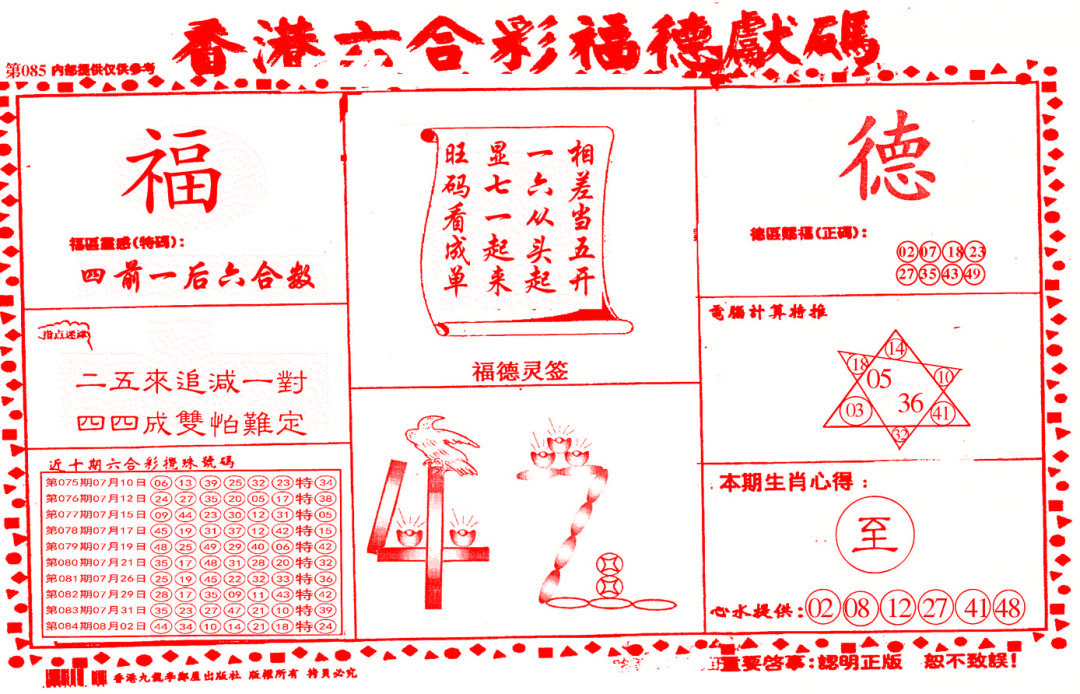 香港六合彩福德獻碼
第085 内部提供仅供参考
福
福區靈感(特碼):
四前一后六合数
指点迷津
二五來追減一對
四四成雙怕難定
近十期六合彩攪珠號碼
第075期07月10日 06 13 39 25 32 23 特 34
第076期07月12日 24 27 35 20 05 17 特 38
第077期07月15日 09 44 23 30 12 31 特 05
第078期07月17日 45 19 31 37 12 42 特 15
第079期07月19日 48 25 49 29 40 06 特 42
第080期07月21日 35 17 48 31 28 20 特 32
第081期07月26日 25 19 45 22 32 33 特 36
第082期07月29日 28 17 35 09 11 43 特 42
第083期07月31日 35 23 27 47 21 10 特 39
第084期08月02日 44 34 10 14 21 18 特 24
相差当五开
一六从头起
显七一起来
旺码看成单
福德灵签
德
德區賜福(正碼):
02 07 18 23
27 35 43 49
電腦計算特推
14
18
10
05
36
03
41
32
本期生肖心得:
至
心水提供: 02 08 12 27 41 48
香港九龍李鄭屋出版社 版權所有 拷貝必究
重要啓事:認明正版 恕不致誤!